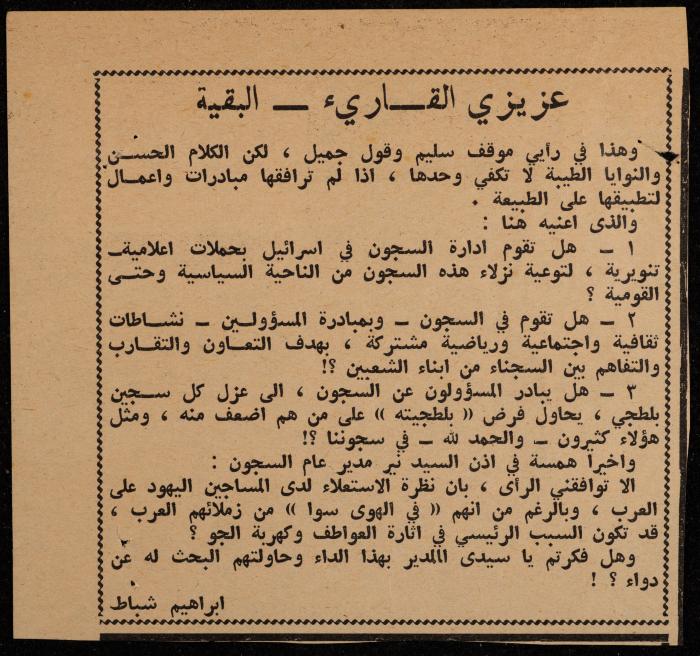 عزيزي القـــاريء ــ البقية
وهذا في رأيي موقف سليم وقول جميل ، لكن الكلام الحســن
والنوايا الطيبة لا تكفي وحدها ، اذا لم ترافقها مبادرات واعمــال
لتطبيقها على الطبيعة .
والذى اعنيه هنا :
١ ــ هل تقوم ادارة السجون في اسرائيل بحملات اعلاميةـ
تنويرية ، لتوعية نزلاء هذه السجون من الناحية السياسية وحتــى
القومية ؟
٢ ــ هل تقوم في السجون ــ وبمبادرة المسؤولــين ــ نشــاطات
ثقافية واجتماعية ورياضية مشتركة ، بهدف التعــاون والتقــارب
والتفاهم بين السجناء من ابناء الشعبين ؟!
٣ ــ هل يبادر المسؤولون عن السجون ، الى عزل كل ســجين
بلطجي ، يحاول فرض (( بلطجيته )) على من هم اضعف منه ، ومثل
هؤلاء كثيرون ــ والحمد لله ــ في سجوننا ؟!
واخيرا همسة في اذن السيد نير مدير عام السجون :
الا توافقني الرأى ، بان نظرة الاستعلاء لدى المساجين اليهود على
العرب ، وبالرغم من انهم (( في الهوى سوا )) من زملائهم العرب ،
قد تكون السبب الرئيسي في اثارة العواطف وكهربة الجو ؟
وهل فكرتم يا سيدى االمدير بهذا الداء وحاولتهم البحث له عن
دواء ؟ !
ابراهيم شباط